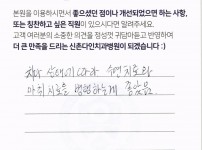 본원을 이용하시면서 좋으셨던 점이나 개선되었으면 하는 사항,
또는 칭찬하고 싶은 직원이 있으시다면 알려주세요.
고객 여러분의 소중한 의견을 정성껏 귀담아듣고 반영하여
더 큰 만족을 드리는 신촌다인치과병원이 되겠습니다 :)
치료
수면치료와
마취치료를 병행하는게 좋았음.